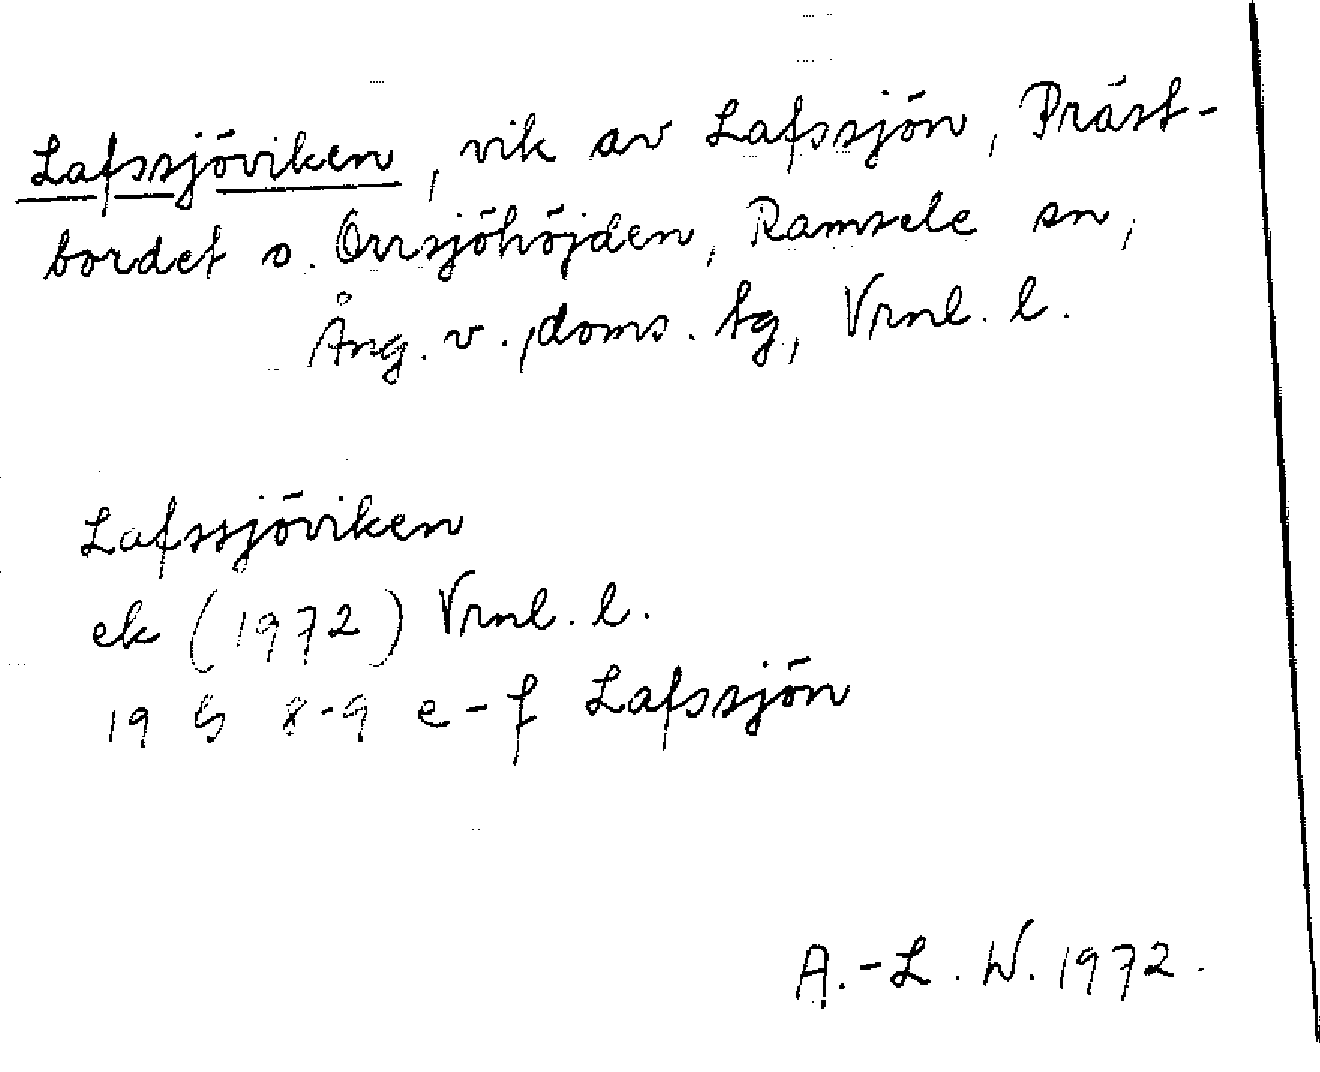 Lafssjöviken, vik av Lafssjön, Präst-
bordet o. Orrsjöhöjden, Ramsele sn,
Ång. v., doms. tg, Vrnl. l.
Lafssjöviken
ek (1972) Vrnl. l.
19 G 8-9 e-f Lafssjön
A.-L. W. 1972.